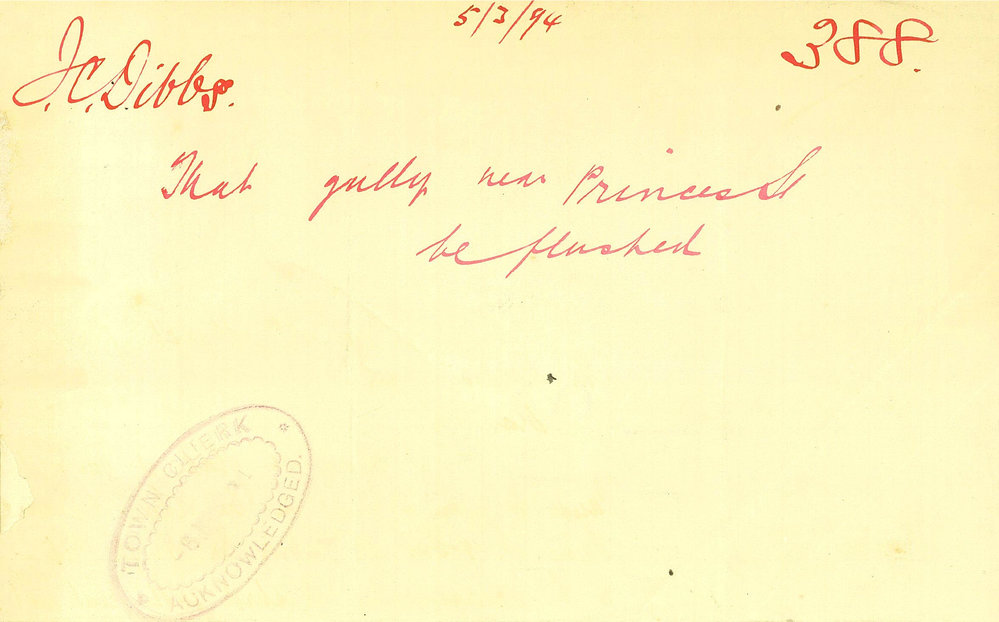 J.C. Dibbs.
5/3/94
388.
That gully near Princes St
be flushed
TOWN CLERK
ACKNOWLEDGED.